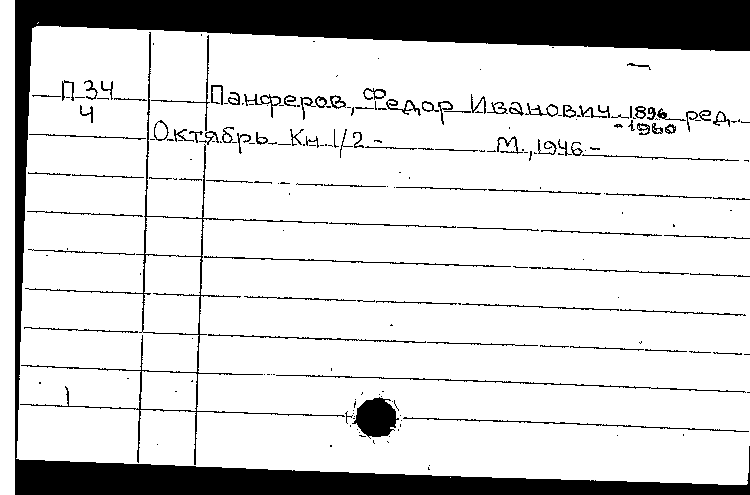 П 34 Панферов, Федор Иванович 1896 ред.
4 -1960
Октябрь Кн 1/2 - М., 1946 -
1